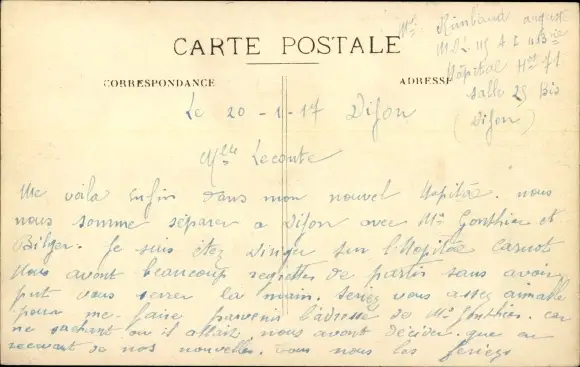 Mr Rimbaud auguste
CARTE POSTALE
Hôpital
CORRESPONDANCE
ADRESSE
salle 29 Bis
Le 20 - 1 - 17 Dijon
(Dijon)
Mlle Leconte
Me voila enfin dans mon nouvel Hopital. nous
nous somme séparer a Dijon avec Mr Gonthier et
Bilger. Je suis étez Diriger sur l'Hopital Carnot
Nous avont beaucoup regretter de partir sans avoir
put vous serrer la main. Seriez vous assez aimable
pour me faire parvenir l'adresse de Mr Gonthier. car
ne sachant ou il allait, nous avont décider que en
recevant de nos nouvelles. vous nous les feriez